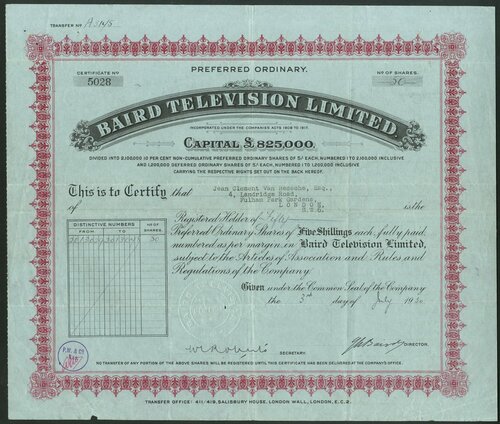 TRANSFER No A 5145
PREFERRED ORDINARY.
CERTIFICATE No
5028
No OF SHARES.
50
BAIRD TELEVISION LIMITED.
INCORPORATED UNDER THE COMPANIES ACTS 1908 TO 1917.
CAPITAL £825,000.
DIVIDED INTO 2,100,000 10 PER CENT NON-CUMULATIVE PREFERRED ORDINARY SHARES OF 5/- EACH, NUMBERED 1 TO 2,100,000 INCLUSIVE
AND 1,200,000 DEFERRED ORDINARY SHARES OF 5/- EACH, NUMBERED 1 TO 1,200,000 INCLUSIVE
CARRYING THE RESPECTIVE RIGHTS SET OUT ON THE BACK HEREOF.
This is to Certify that Jean Clement Van Esq.,
4, Landridge Road,
Fulham Park Gardens,
of LONDON. is the
S.W.6.
Registered Holder of Fifty
Preferred Ordinary Shares of Five Shillings each, fully paid,
numbered as per margin, in Baird Television Limited,
subject to the Articles of Association and Rules and
Regulations of the Company.
DISTINCTIVE NUMBERS
FROM TO
No OF SHARES.
50
Given under the Common Seal of the Company
the 3rd day of July 1930
SECRETARY.
DIRECTOR.
P.W. & CO
NO TRANSFER OF ANY PORTION OF THE ABOVE SHARES WILL BE REGISTERED UNTIL THIS CERTIFICATE HAS BEEN DELIVERED AT THE COMPANY'S OFFICE.
TRANSFER OFFICE: 411/419, SALISBURY HOUSE, LONDON WALL, LONDON, E.C.2.